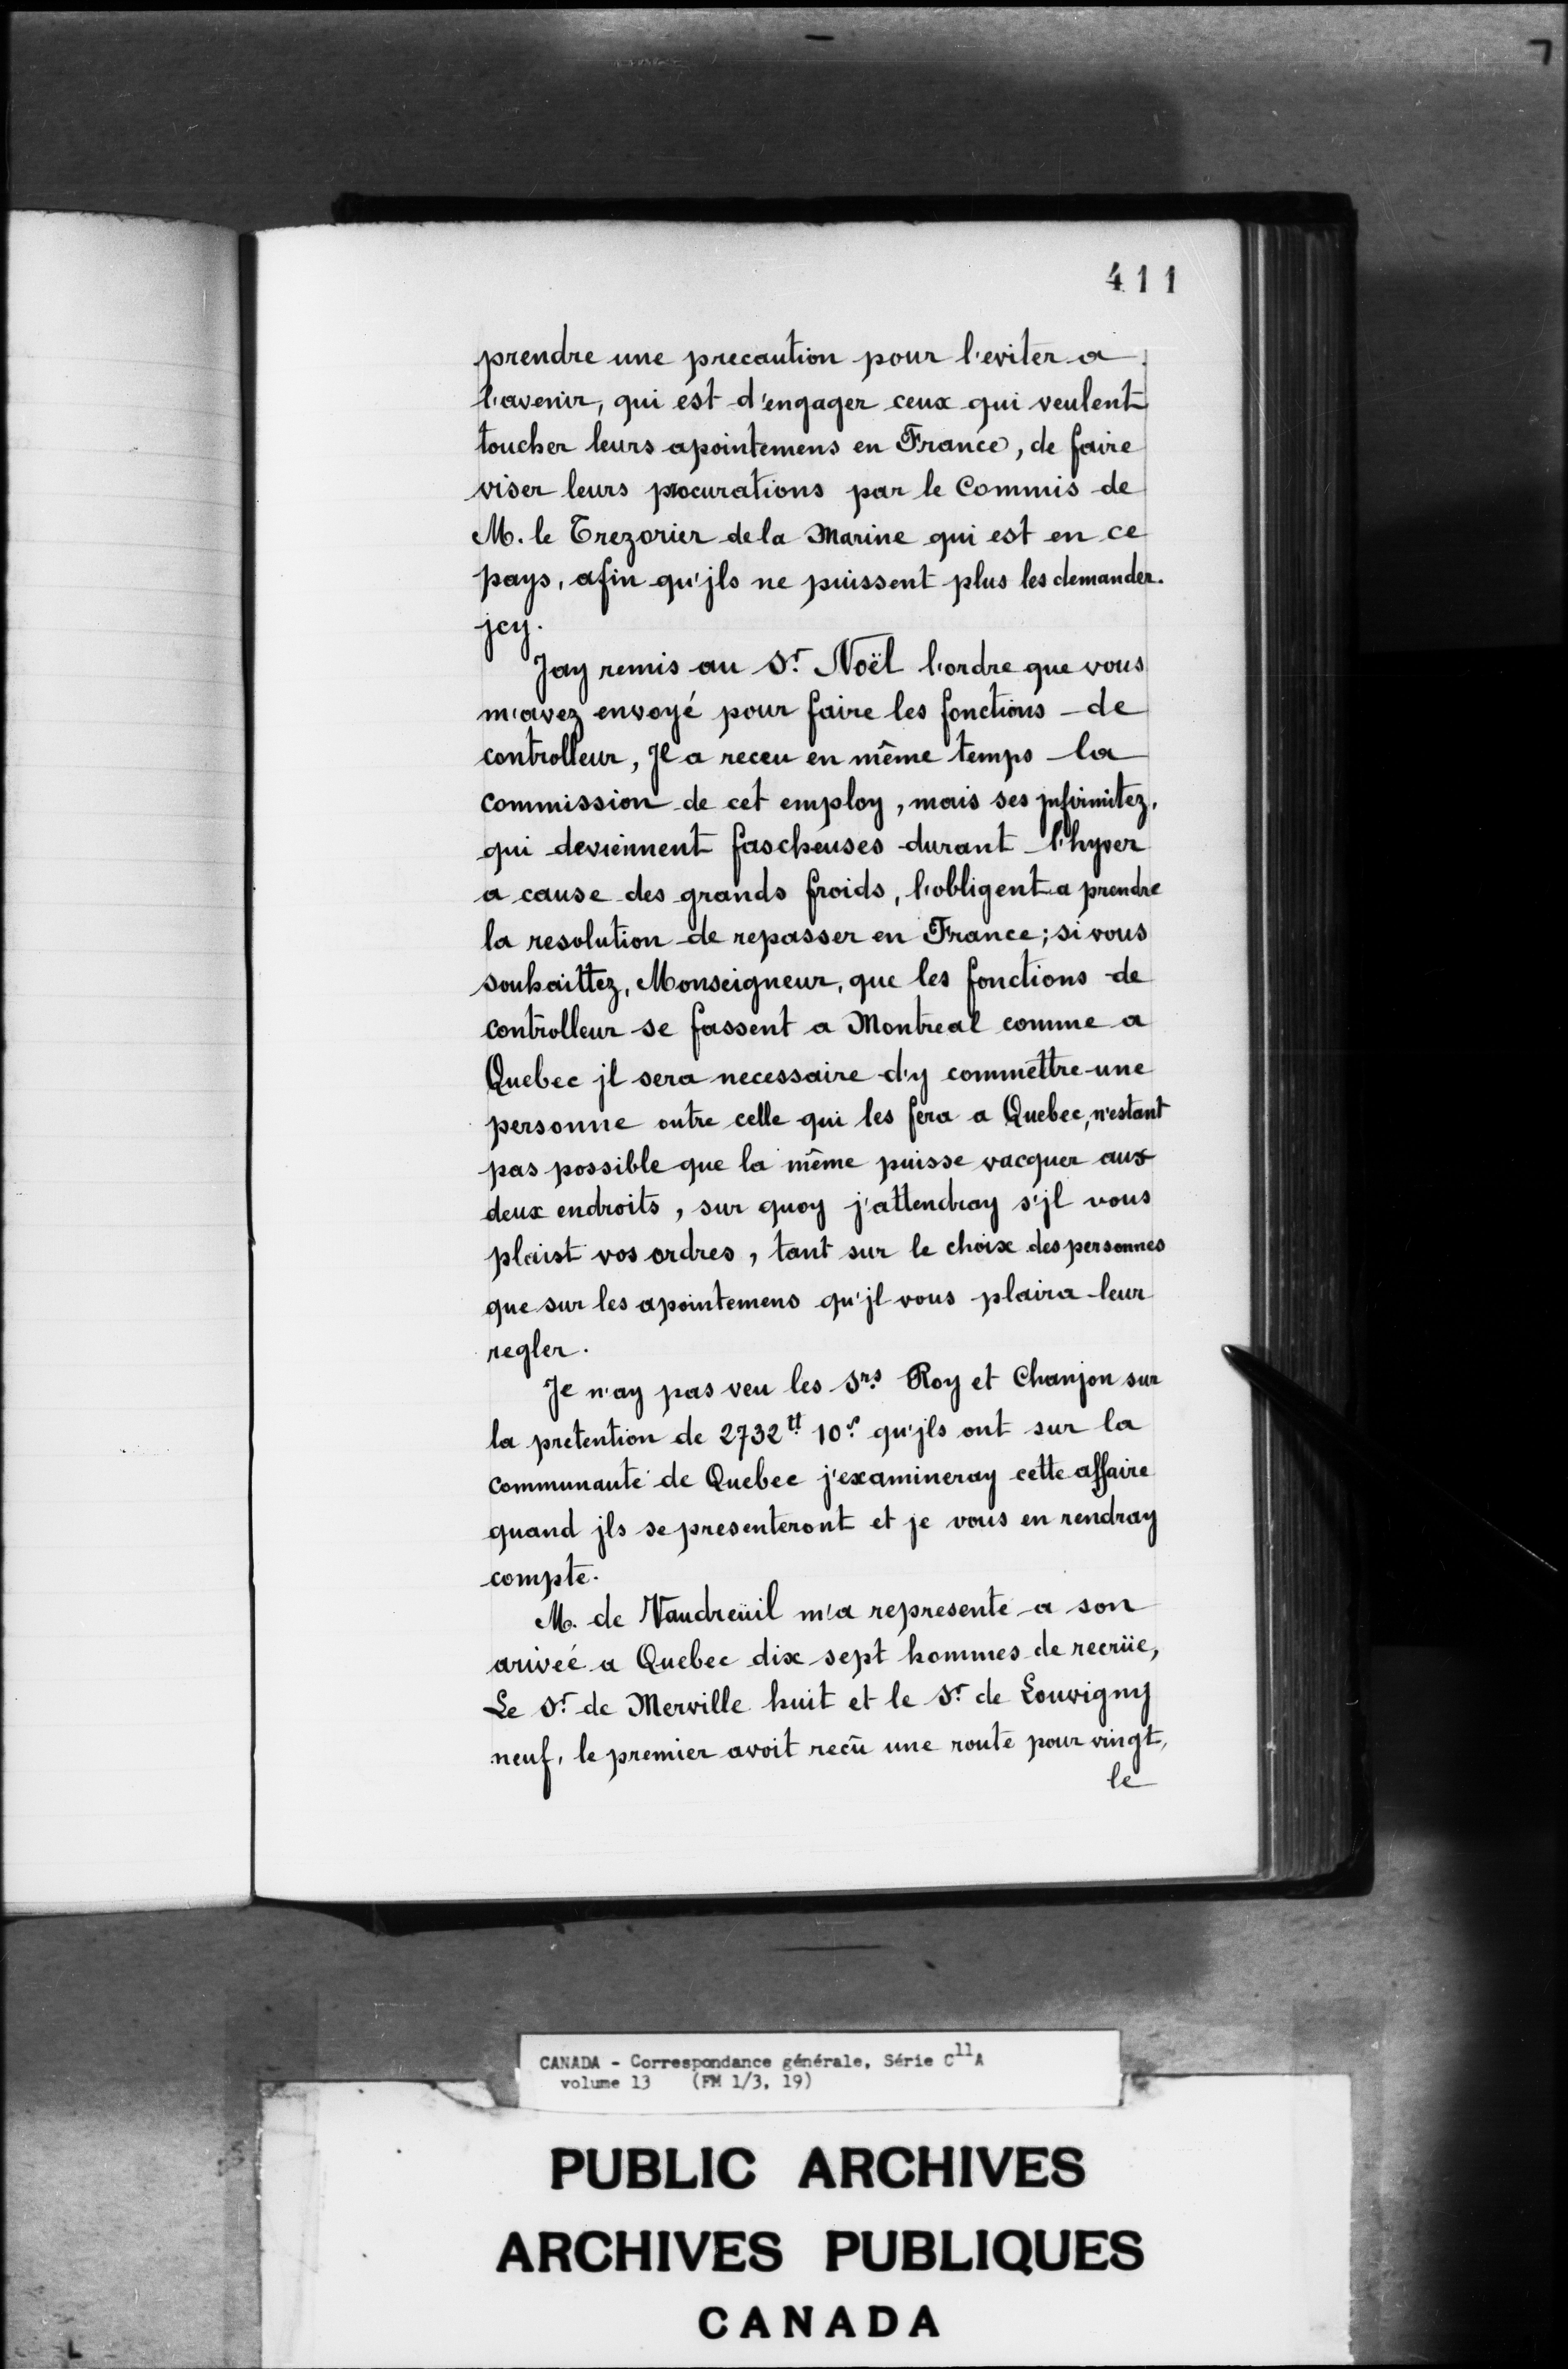 411
prendre une precaution pour l'eviter a
l'avenir, qui est d'engager ceux qui veulent
toucher leurs apointemens en France, de faire
viser leurs procurations par le Commis de
M. le Trezorier de la Marine qui est en ce
pays, afin qu'jls ne puissent plus les demander.
jcy.
Jay remis au Sr. Noël l'ordre que vous
m'avez envoyé pour faire les fonctions de
controlleur, Jl a receu en même temps la
commission de cet employ, mais ses jnfirmitez,
qui deviennent fascheuses durant l'hyver
a cause des grands froids, l'obligent a prendre
la resolution de repasser en France; si vous
souhaittez, Monseigneur, que les fonctions de
controlleur se fassent a Montreal comme a
Quebec jl sera necessaire d'y commettre une
personne outre celle qui les fera a Quebec, n'estant
pas possible que la même puisse vacquer aux
deux endroits, sur quoy j'attendray s'jl vous
plaist vos ordres, tant sur le choix des personnes
que sur les apointemens qu'jl vous plaira leur
regler.
Je n'ay pas veu les Srs. Roy et Chanjon sur
la pretention de 2732tt 10s. qu'jls ont sur la
communauté de Quebec j'examineray cette affaire
quand jls se presenteront et je vous en rendray
compte.
M. de Vaudreüil m'a representé a son
arivée a Quebec dix sept hommes de recrüe,
Le Sr. de Merville huit et le Sr. de Louvigny
neuf, le premier avoit recû une route pour vingt,
le
CANADA - Correspondance générale, Série C11A
volume 13 (FM 1/3, 19)
PUBLIC ARCHIVES
ARCHIVES PUBLIQUES
CANADA